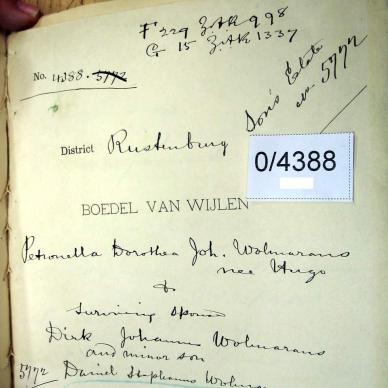 F 229 ZAK 998
G 15 ZAK 1337
No. 4388. 5772
Son's Estate
5772
District Rustenburg
0/4388
BOEDEL VAN WIJLEN
Petronella Dorothea Joh. Wolmarans
nee Hugo
&
surviving spouse
Dirk Johannes Wolmarans
and minor son
5772 Daniel Stephanus